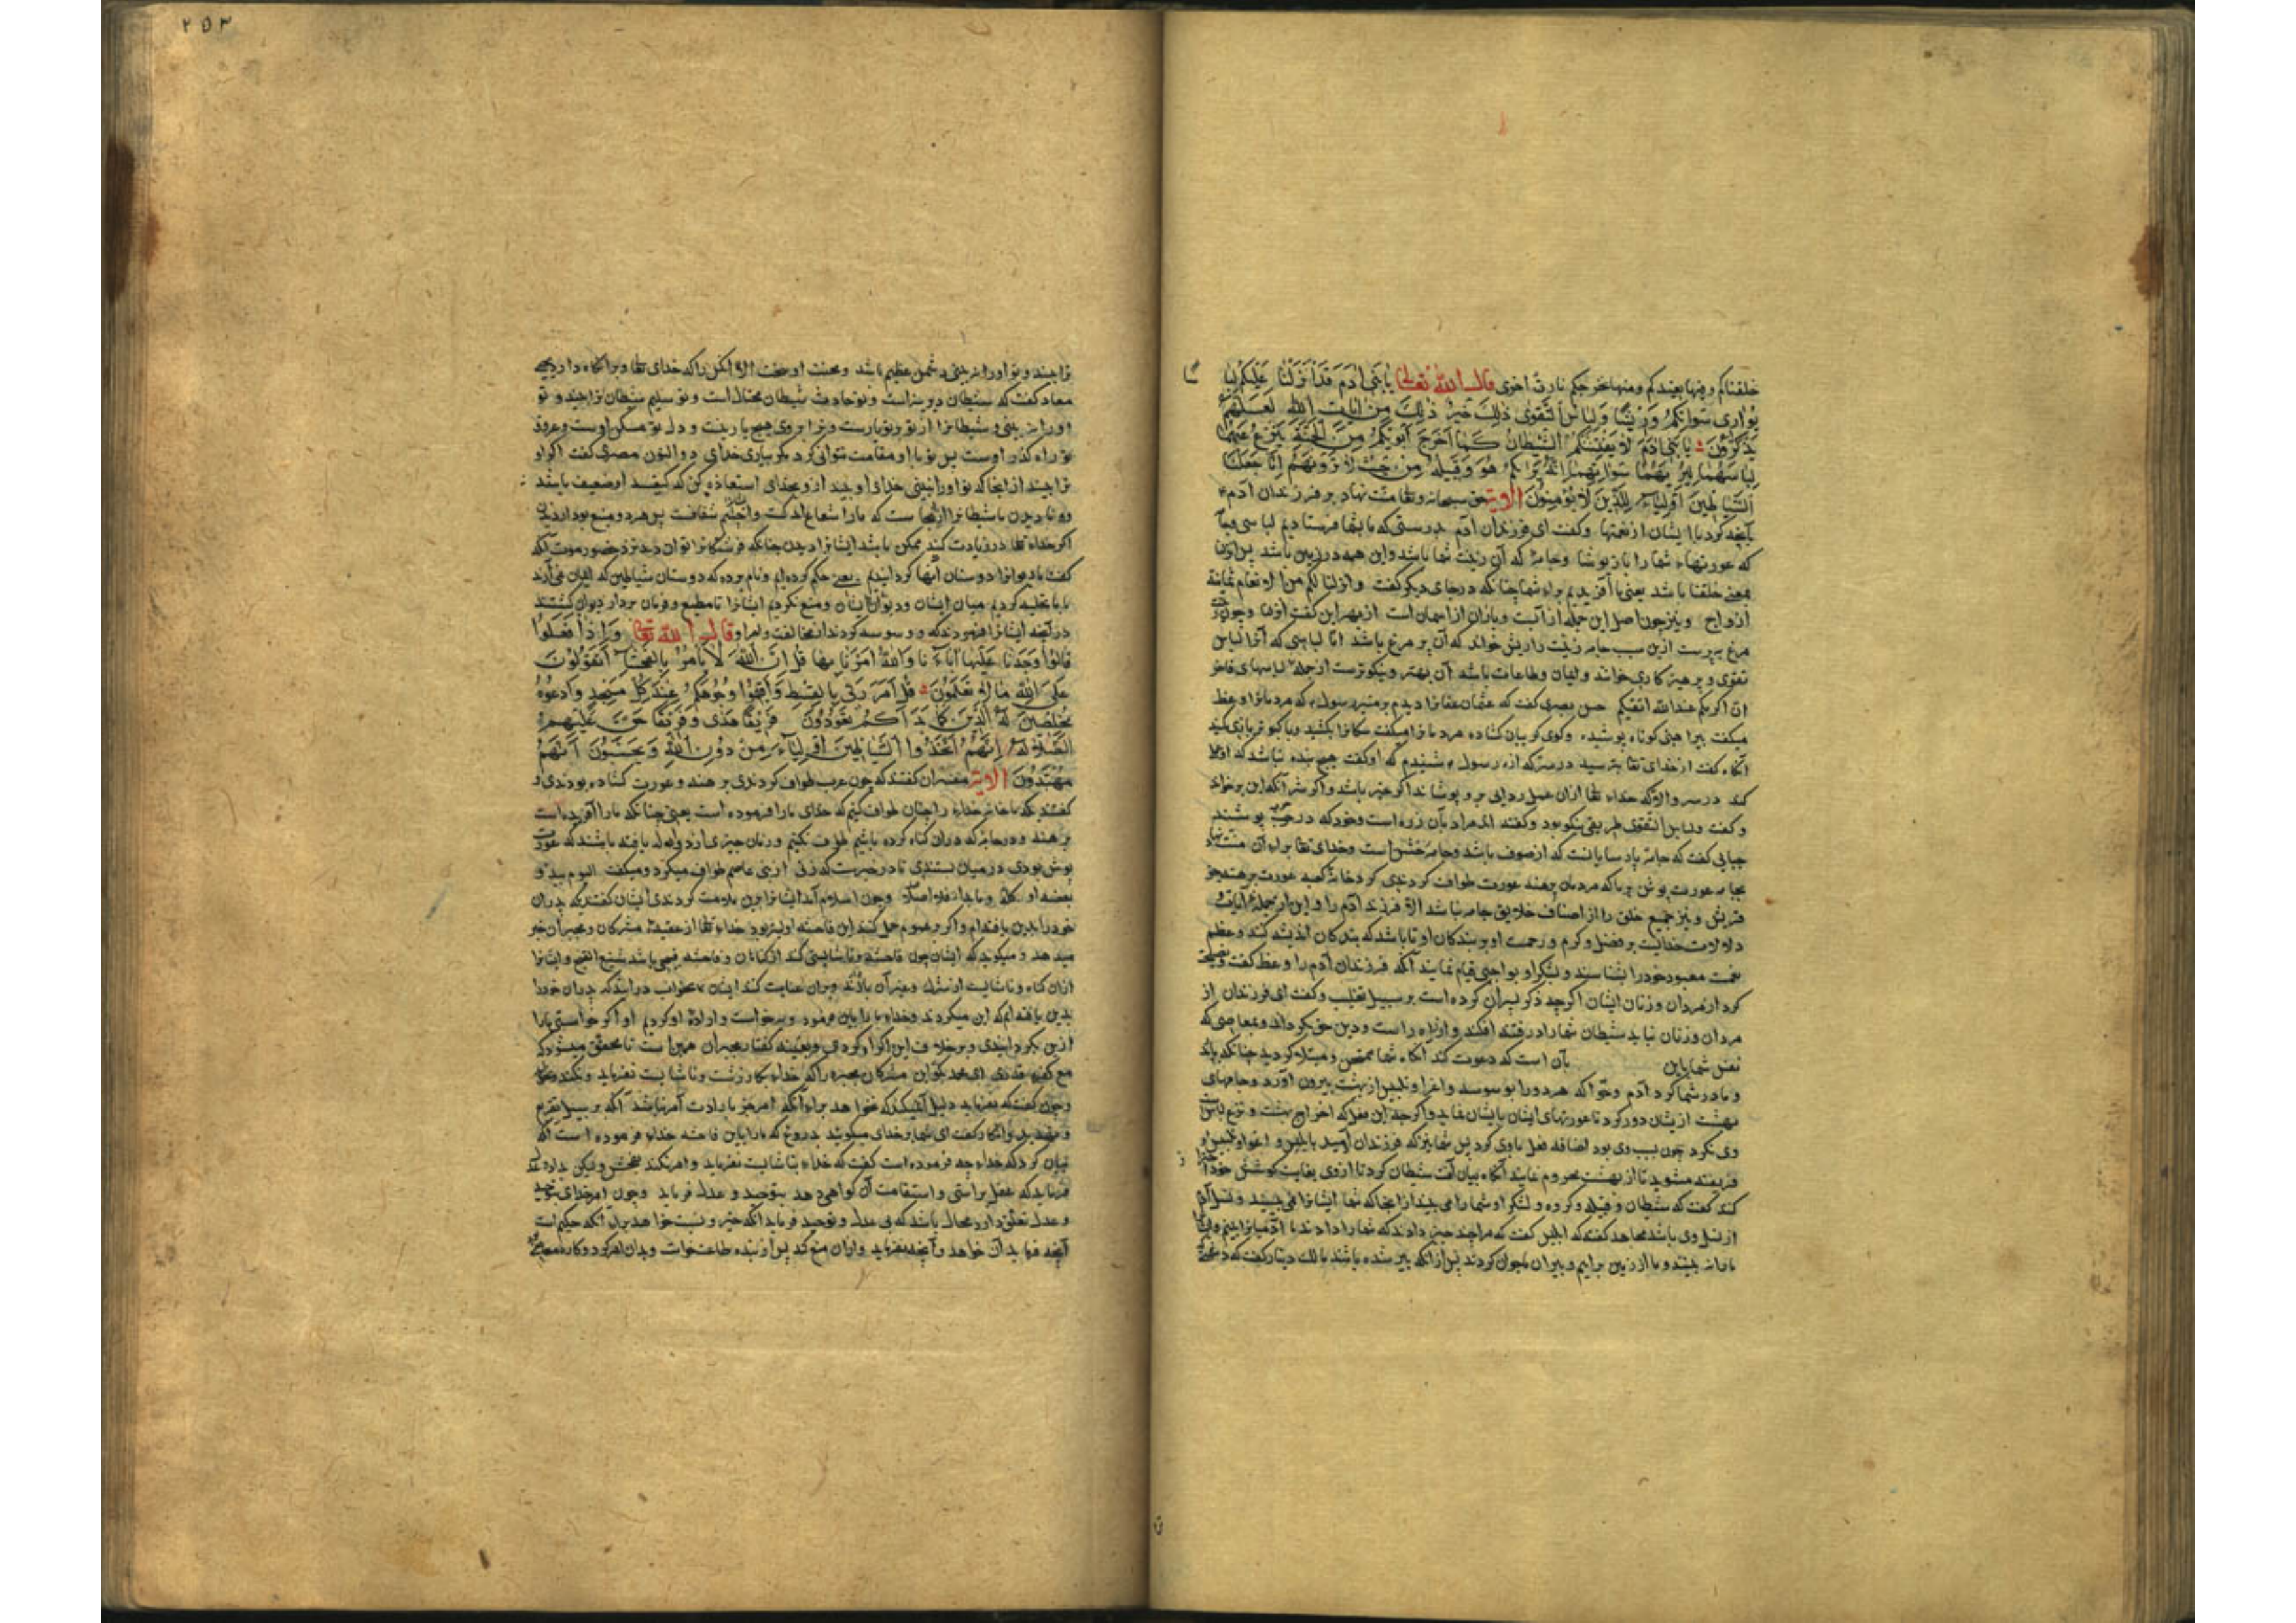 خلقناکم وفیها نعیدکم ومنها نخرجکم تارة اخری قال الله تعالی یا بنی آدم قد انزلنا علیکم لبا
سا
یواری سوآتکم وریشا ولباس التقوی ذلک خیر ذلک من آیات الله لعلهم
یذکرون یا بنی آدم لا یفتننکم الشیطان کما اخرج ابویکم من الجنة ینزع عنهما
لباسهما لیریهما سوآتهما انه یراکم هو وقبیله من حیث لا ترونهم انا جعلنا
الشیاطین اولیاء للذین لا یؤمنون الآیة حق سبحانه وتعا منت نهاد بر فرزندان آدم
بآنچه کرد با ایشان از نعمتها وکفت ای فرزندان آدم بدرستی که ما بشما فرستادیم لباسی
که عورتهاء شما را باز پوشا وجامهٔ که آن زینت شما باشد واین همه در زمین باشد پس انزلنا
بمعنی خلقنا باشد یعنی ما آفریدیم برای شما چنانکه در جای دیکر کفت وانزلنا لکم من الانعام ثمانیة
ازواج ونیز چون اصل این جمله از آبست وباران از آسمان است از بهر این کفت انزلنا وچون
مرغ به پرست ازین سبب جامه زینت را ریش خواند که آن بر مرغ باشد اما لباسی که آنرا لباس
تقوی وپرهیزکاری خوانند وایمان وطاعات باشد آن بهتر ونیکوترست از جمله لباسهای فاخر
ان اکرمکم عند الله اتقیکم حسن بصری کفت که عثمان عفانرا دیدم بر منبر رسول که مردمانرا وعظ
میکفت پیراهنی کوتاه پوشیده وکوی کریبان کشاده مردمانرا میکفت سکانرا بکشید وبا کبوتر بازی مکنید
آنکاه کفت از خدای تعا بترسید در سر که از رسول شنیدم که او کفت هیچ بنده نباشد که او عملا
کند در سر والا که خداء تعا ازان عمل ردایی برو پوشاند اکر خیر باشد واکر شر آنکه این برخواند
وکفت ولباس التقوی طریقی نیکو بود وکفتند المراد بآن زره است وخود که در حرب پوشند
جبایی کفت که جامهٔ پارسایانست که از صوف باشد وجامه خشن است وخدای تعا برای آن منت نهاد
بجامه عورت پوش برما که مردمان برهنه عورت طواف کردندی کرد خانهٔ کعبه عورت برهنه جز
قریش ونیز جمیع خلق را از اصناف خلایق جامه نباشد الا فرزند آدم را واین از جملهٔ آیات و
دلالات خدایست بر فضل وکرم ورحمت او بر بندکان او تا باشد که بندکان اندیشه کنند وعظم
نعمت معبود خود را بشناسند وبشکر او بواجبی قیام نمایند آنکه فرزندان آدم را وعظ کفت ونصیحت
کرد از مردان وزنان ایشان اکرچه ذکر پسران کرده است بر سبیل تغلیب وکفت ای فرزندان از
مردان وزنان نباید شیطان شما را در فتنه افکند واز راه راست ودین حق بکرداند وبمعاصی که
تعلق شما باین بآن است که دعوت کند آنکاه شما ممتحن ومبتلا کردید چنانکه پدر
ومادر شما کرد آدم وحوا که هر دو را بوسوسه واغرا وتلبیس از بهشت بیرون آورد وجامهای
بهشت ازیشان دور کرد تا عورتهای ایشان بایشان نماید واکرچه این فعل که اخراج بهشت ونزع لباس
وی نکرد چون بسبب وی بود اضافه فعل باوی کرد پس شما نیز که فرزندان آدمید بابلیس واغوا وتلبیس او
فریفته مشوید تا از بهشت محروم نمایند آنکاه بیان آفت شیطان کرد تا ازوی بغایت کوشش حذر
کنند کفت که شیطان وقبیله وکروه ولشکر او شما را می بینند از آنجا که شما ایشانرا نمی بینید ونسل آدم
از نسل وی باشد مجاهد کفت که ابلیس کفت که مرا چند چیز دادند که شما را دادند ما آدمیانرا بینیم وایشان
ما را نه بینند وما از زمین برآییم وپیران ما جوان کردند پس از آنکه پیر شده باشند مالک دینار کفت که دشمنی که
۲۵۳
ترا بیند وتو اورا نه بینی دشمن عظیم باشد ومحنت او سخت الا آنکس را که خدای تعا ویرا نکاه دارد یحیی
معاد کفت که شیطان دیرینه است وتو حادث شیطان محتال است وتو سلیم شیطان ترا بیند وتو
اورا نه بینی وشیطانرا از تو بر تو یارست وترا بروی هیچ یار نیست ودل تو مسکن اوست وعروق
تو راه کذر اوست پس تو با او مقامت نتوانی کرد مکر بیاری خدای ذو النون مصری کفت اکر او
ترا بیند از آنجا که تو اورا نبینی خدای اورا بیند ازو بخدای استعاذه کن که کید او ضعیف باشد
ونادیدن ما شیطانرا از آنجا ست که ما را شعاع اندکست واجسام شفافست پس هر دو منع بود از دیدن
اکر خداء تعا در زیادت کند ممکن باشد ایشانرا دیدن چنانکه فرشتکانرا توان دید نزد حضور موت آنکه
کفت ما دیوانرا دوستان آنها کردانیدیم یعنی حکم کرده ایم ونام برده که دوستان شیاطین که ایمان نمی آرند
یا ما تخلیه کردیم میان ایشان ودیوان ایشان ومنع نکردیم ایشانرا تا مطیع وفرمان بردار دیوان کشتند
در آنچه ایشانرا فرمودند که ووسوسه کردند از مخالفت ولهو او قال الله تعا واذا فعلوا
قالوا وجدنا علیها آباءنا والله امرنا بها قل ان الله لا یأمر بالفحشاء اتقولون
علی الله ما لا تعلمون قل امر ربی بالقسط واقیموا وجوهکم عند کل مسجد وادعوه
مخلصین له الدین کما بدأکم تعودون فریقا هدی وفریقا حق علیهم
الضلالة انهم اتخذوا الشیاطین اولیاء من دون الله ویحسبون انهم
مهتدون الآیة مفسران کفتند که چون عرب طواف کردندی برهنه وعورت کشاده بودندی و
کفتند که ما خانهٔ خداء را چنان طواف کنیم که خدای ما را فرموده است یعنی چنانکه ما را آفریده است
برهنه ودر جامهٔ که دران کناه کرده باشیم طواف نکنیم وزنان چیزی از دوال بافته باشند که عورت
پوش بودی در میان بستندی تا در خبرست که زنی از بنی عامر طواف میکرد ومیکفت الیوم یبدو
بعضه او کله وما بدا منه فلا احله وچون اسلام آمد ایشانرا برین ملامت کردندی ایشان کفتندی که پدران
خود را برین یافته ایم واکر بر عموم حمل کنند این فاحشه اولیتر بود خداء تعا از عقیدهٔ مشرکان ومجبران خبر
میدهد ومیکوید که ایشان چون فاحشهٔ وناشایستی کنند از کناهان وفاحشه قبیحی باشد شنیع القبح وایشانرا
ازان کناه وناشایست از شرک وغیر آن بازدارند وبران عتاب کنند ایشان بجواب درآیند که پدران خود را
بدین یافته ایم که این میکردند وخداء ما را باین فرمود وبه خواست وارادهٔ او کردیم او اکر خواستی ما را
ازین بکردانیدی وبر خلاف این اکراه کردی وبعینه کفتار مجبران همین است تا محقق میشود که
مع کفر قدری ای محمد بکو این مشرکان مجبره را که خداء بکار زشت وناشایست نفرماید ونکند
وچون کفت که نفرماید دلیل آن میکند که نخواهد برای آنکه امر جز بارادت آمر نباشد آنکه بر سبیل تقریع
وتهدید وانکار کفت ای شما بر خدای میکوئید بدروغ که ما را باین فاحشه خداء فرموده است آنکه
بیان کرد که خداء چه فرموده است کفت که خداء بناشایست نفرماید وامر نکند بفحش ولیکن بداد وعدل
فرماید که عقل براستی واستقامت آن کواهی دهد بتوحید وعدل فرماید وچون امر خدای بتوحید
وعدل تعلق دارد محال باشد که بی عدل وتوحید فرماید آنکه خیر ونیست خواهد برای آنکه حکیم است
آنچه فرماید آن خواهد وآنچه نفرماید وازان منع کند پس از بنده طاعت خواست وبدان امر کرد وکاره معصیت